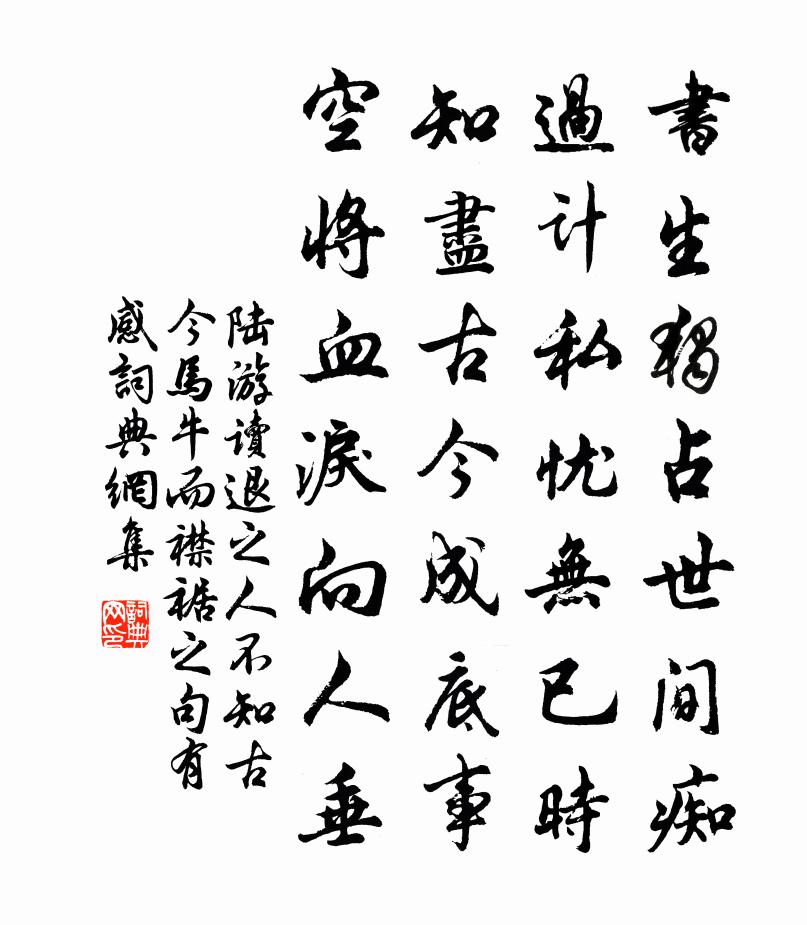 書生獨占世間痴
過計私忧無已時
知盡古今成底事
空將血淚向人垂
陆游讀退之人不知古
今馬牛而襟裾之句有
感詞典網集
詞典网印